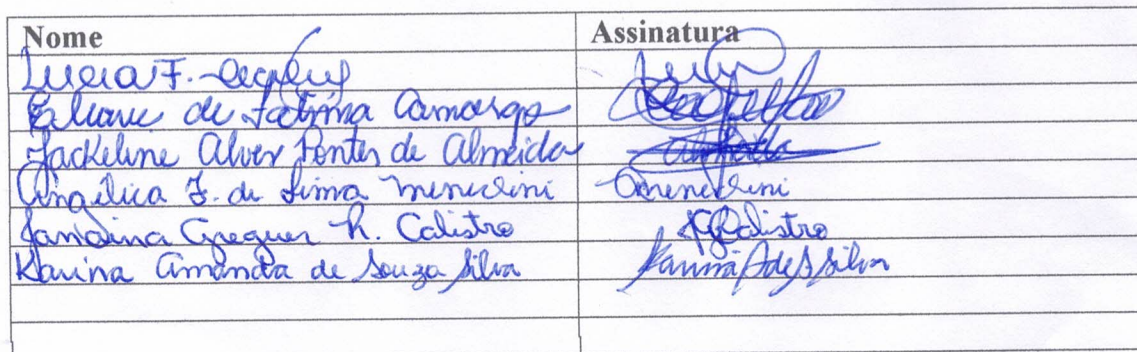 Nome Assinatura
Lucia F.
Eliane de Fatima Camargo
Jackeline Alves Pontes de Almeida Almeida
Angélica F. de Lima Meneclini Ameneclini
Janaina R. Calistro Calistro
Karina Amanda de Souza Silva Karina A de S Silva